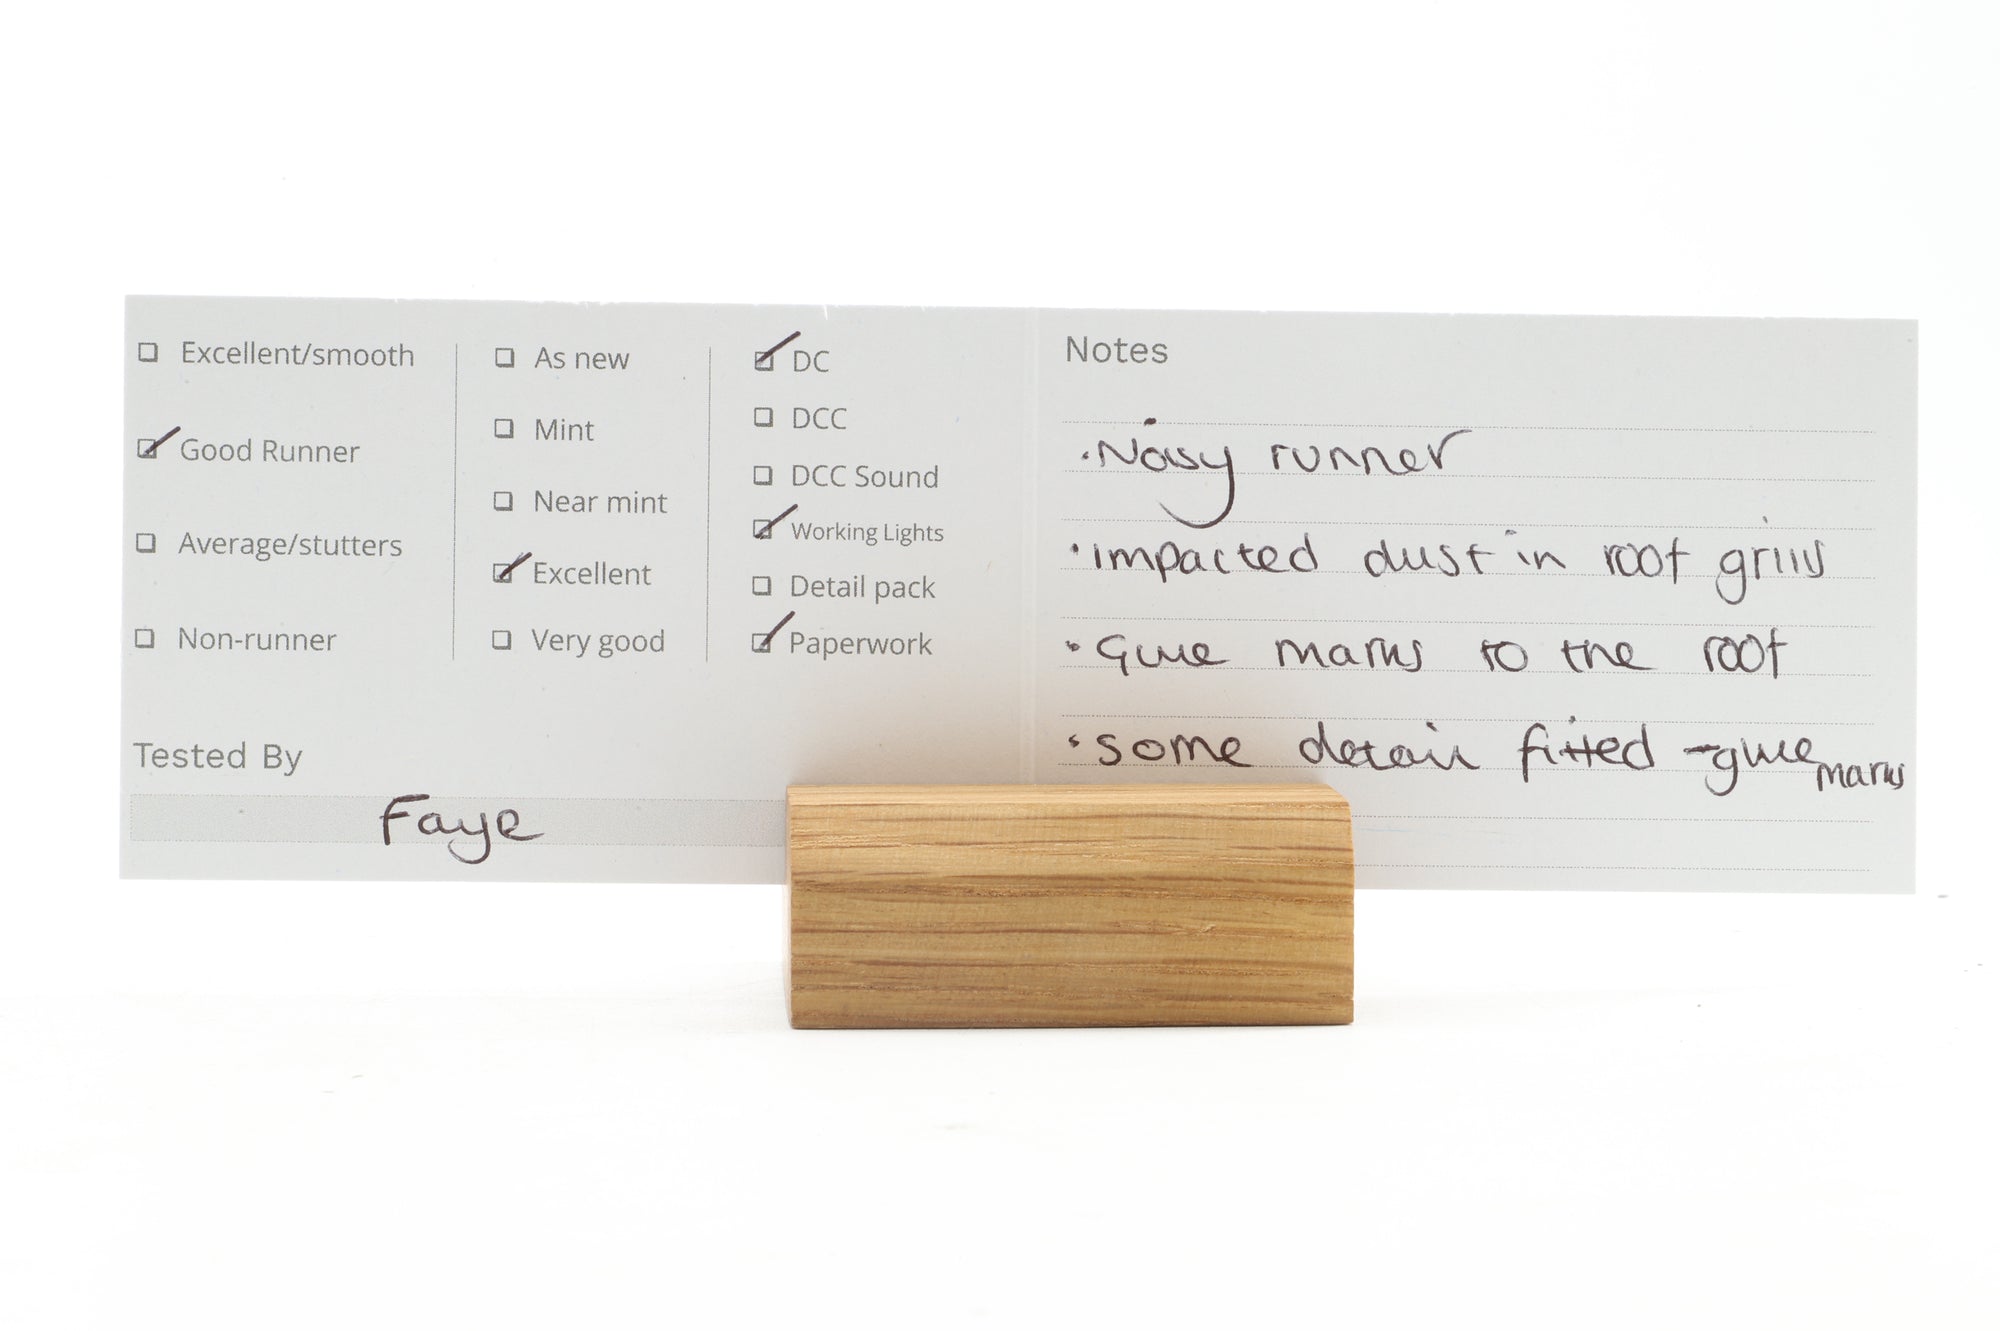 Excellent/smooth
Good Runner
Average/stutters
Non-runner
As new
Mint
Near mint
Excellent
Very good
DC
DCC
DCC Sound
Working Lights
Detail pack
Paperwork
Tested By
Faye
Notes
• Noisy runner
• impacted dust in roof grills
• Glue marks to the roof
• some detail fitted - glue marks